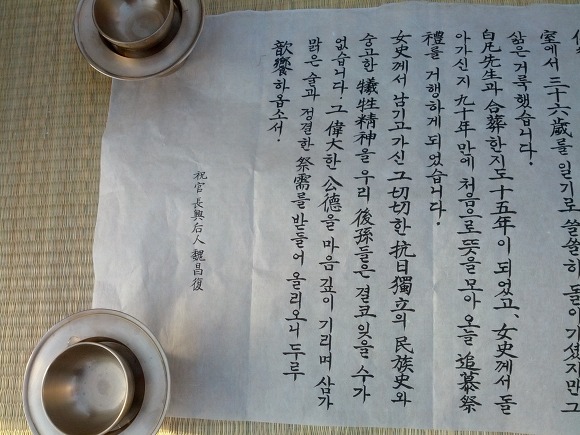 室에서 三十六歲를 일기로 쓸쓸히 돌아가셨지만 그
삶은 거룩했습니다.
白凡先生과 合葬한지도 十五年이 되었고, 女史께서 돌
아가신지 九十年만에 처음으로 뜻을 모아 오늘 追慕祭
禮를 거행하게 되었습니다.
女史께서 남기고 가신 그 切切한 抗日獨立의 民族史와
숭고한 犧牲精神을 우리 後孫들은 결코 잊을 수가
없습니다. 그 偉大한 公德을 마음 깊이 기리며 삼가
맑은 술과 정결한 祭需를 받들어 올리오니 두루
歆饗하옵소서.
祝官 長興后人 魏昌復